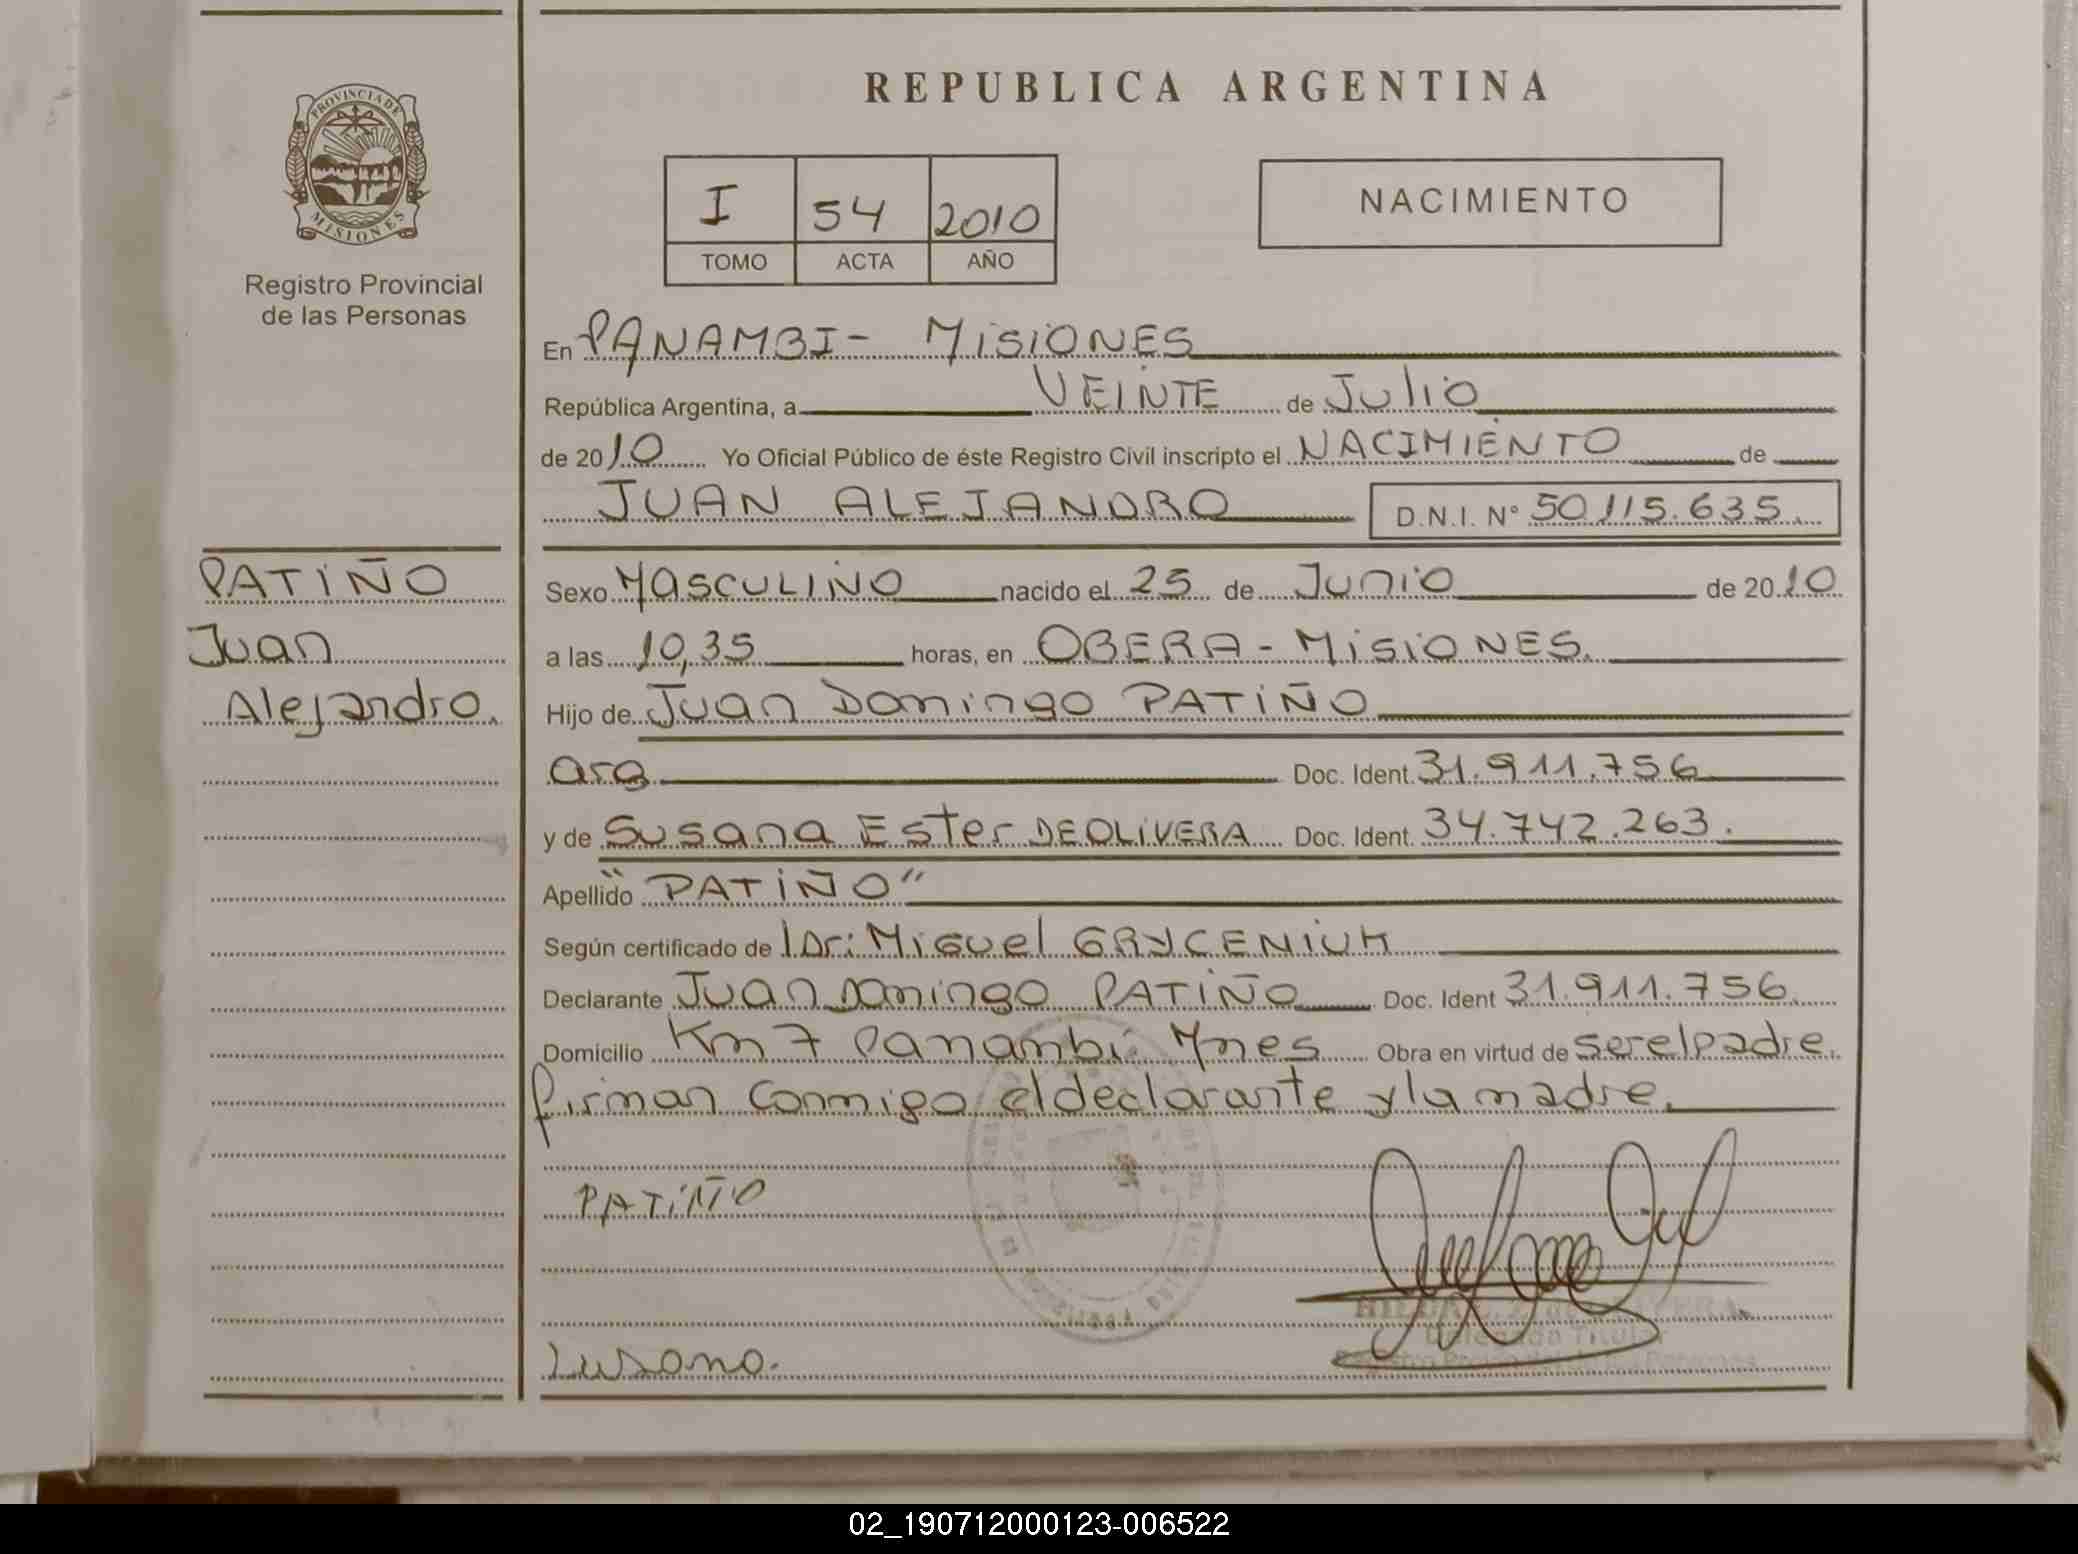 PROVINCIA DE
MISIONES
Registro Provincial
de las Personas
PATIÑO
Juan
Alejandro.
REPUBLICA ARGENTINA
I 54 2010
TOMO ACTA AÑO
NACIMIENTO
En PANAMBI - MISIONES
República Argentina, a VEINTE de Julio
de 2010 Yo Oficial Público de éste Registro Civil inscripto el NACIMIENTO de
JUAN ALEJANDRO D.N.I. N° 50.115.635.
Sexo MASCULINO nacido el 25 de Junio de 2010
a las 10,35 horas, en OBERA - MISIONES.
Hijo de Juan Domingo PATIÑO
arg Doc. Ident. 31.911.756
y de Susana Ester DEOLIVERA Doc. Ident. 34.742.263.
Apellido "PATIÑO"
Según certificado de Dr: Miguel GRYCENIUK
Declarante Juan Domingo PATIÑO Doc. Ident 31.911.756.
Domicilio Km 7 Panambí Mnes Obra en virtud de ser el padre.
firman conmigo el declarante y la madre.
PATIÑO
Delegada Titular
02_190712000123-006522